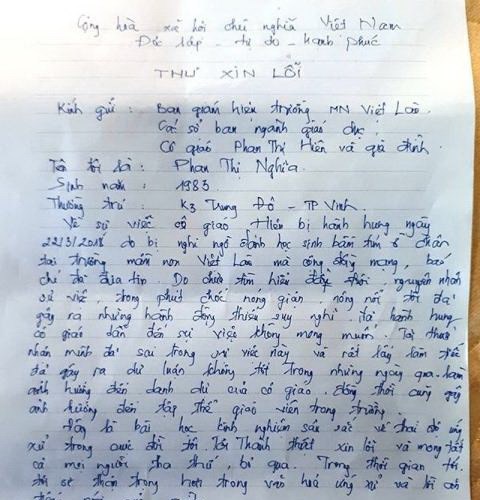 Cộng hoà xã hội chủ nghĩa Việt Nam
Độc lập - tự do - hạnh phúc
THƯ XIN LỖI
Kính gửi : Ban giám hiệu trường MN Việt Lào.
Các sở ban ngành giáo dục.
Cô giáo Phan Thị Hiền và gia đình.
Tên tôi là : Phan Thị Nghĩa.
Sinh năm : 1983
Thường trú : K3 Trung Đô - TP Vinh.
Về sự việc cô giáo Hiền bị hành hung ngày
22/3/2018 do bị nghi ngờ đánh học sinh bầm tím ở chân
tại trường mầm non Việt Lào mà cộng đồng mạng, báo
chí đã đưa tin. Do chưa tìm hiểu được thời nguyên nhân
sự việc, trong phút chốc nóng giận, nông nổi tôi đã
gây ra những hành động thiếu suy nghĩ, là hành hung
cô giáo dẫn đến sự việc không mong muốn. Tôi thừa
nhận mình đã sai trong sự việc này và rất lấy làm tiếc
đã gây ra dư luận không tốt trong những ngày qua. Làm
ảnh hưởng đến danh dự của cô giáo, đồng thời cũng gây
ảnh hưởng đến tập thể giáo viên trong trường.
Đây là bài học kinh nghiệm sâu sắc về thái độ ứng
xử trong cuộc đời tôi. Tôi Thành thật xin lỗi và mong tất
cả mọi người tha thứ, bỏ qua. Trong thời gian tới.
tôi sẽ thận trọng hơn trong văn hoá ứng xử và lời ăn